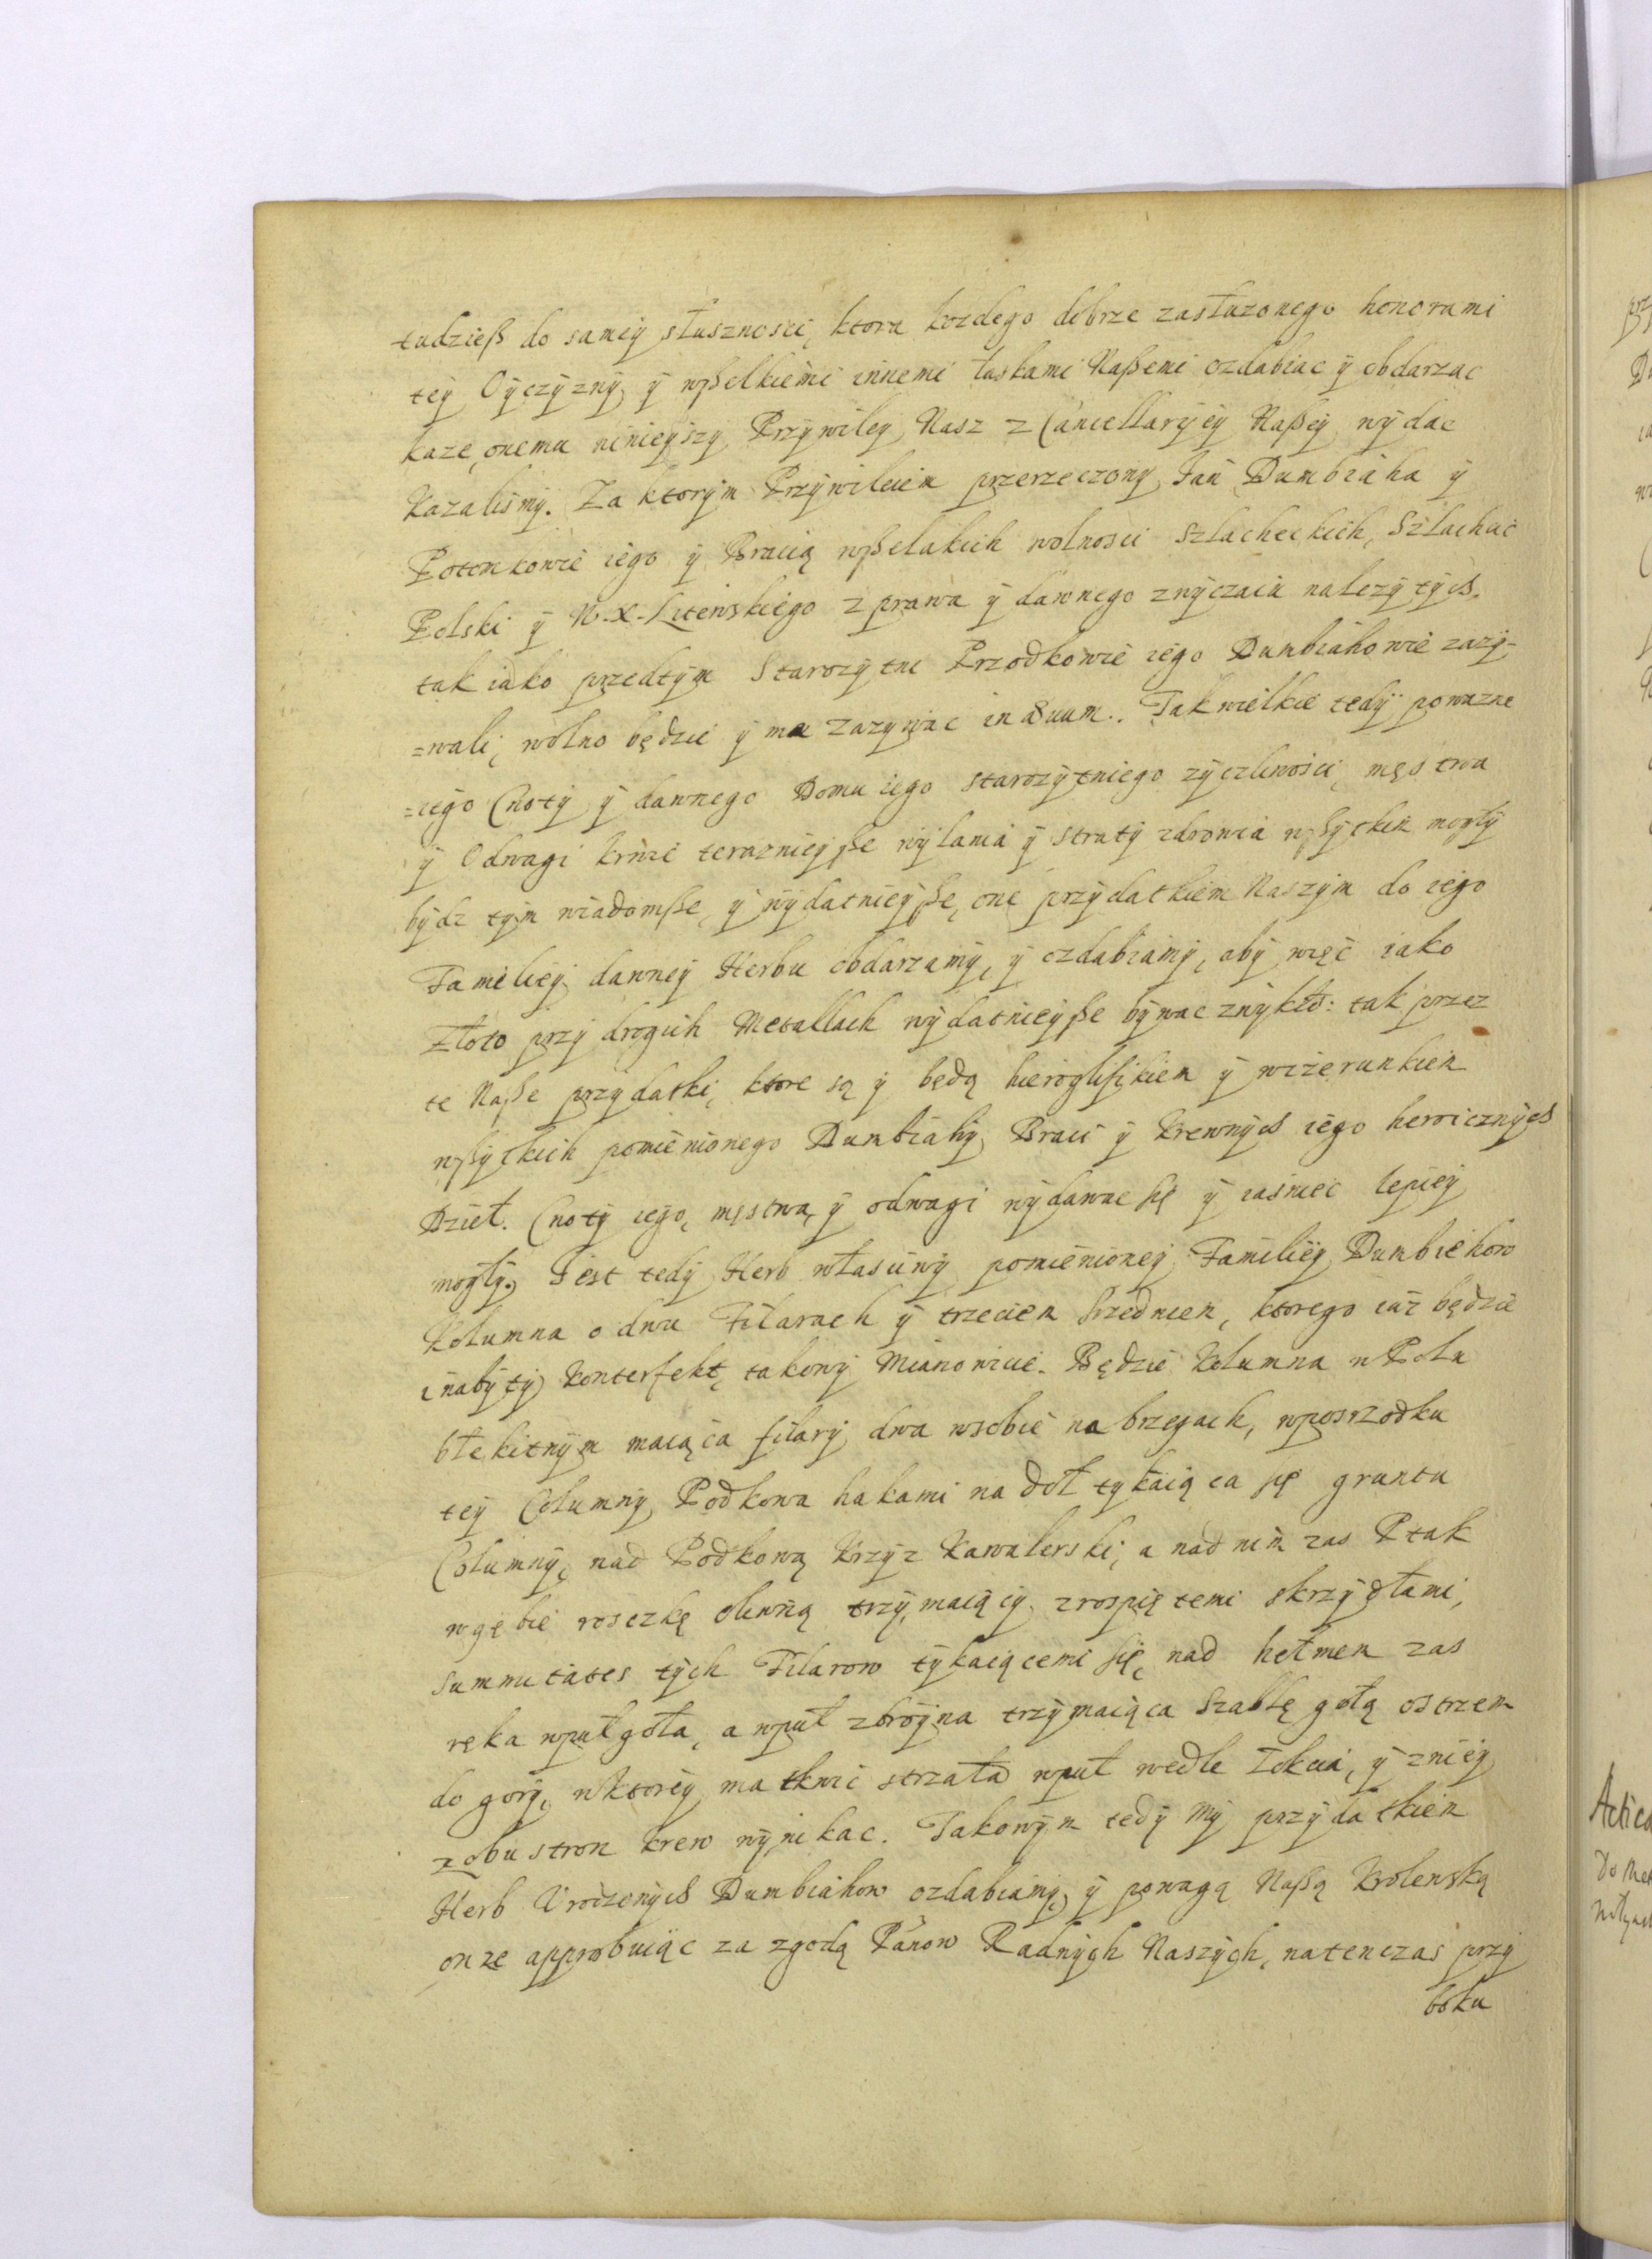 tudzieß do samey słusznosci, ktora kozdego dobrze zasłuzonego honorami
tey Oÿczÿznÿ ÿ wßelkiemi innemi łaskami Naßemi ozdabiac ÿ obdarzac
kaze, onemu ninieyszy Przÿwiley Nasz z Cancellarÿey Naßey wÿdac
Kazalismÿ. Za ktorÿm Przÿwileiem przerzeczonÿ Jan Dumbiaha ÿ
Potomkowie iego ÿ Bracią wßelakich wolnosci szlacheckich, Szlachcie
Polski ÿ W. X. Litewskiego z prawa ÿ dawnego zwÿczaiu nalezÿtÿch,
tak iako przedtÿm Starozÿtni Przodkowie iego Dumbiahowie zazÿ-
=wali, wolno będzie ÿ mu zazywac in ævum. Tak wielkie tedÿ powazne
=iego Cnotÿ ÿ dawnego Domu iego starozÿtniego zÿczliwosci, męstwa
ÿ Odwagi krwie teraznieyße wÿlania ÿ stratÿ zdrowia wßÿtkim mogłÿ
bÿdz tÿm wiadomße, ÿ wÿdatnieyße, one przÿdatkiem Naszÿm do iego
Familiey dawney Herbu obdarzamÿ, ÿ ozdabiamÿ, abÿ więc iako
Złoto przÿ drogich Metallach wÿdatnieyße bÿwac zwÿkło: tak przez
te Naße przÿdatki, ktore są ÿ będą hieroglifikiem ÿ wizerunkiem
wßÿtkich pomienionego Dumbiahÿ Braci ÿ Krewnÿch iego heroicznÿch
Dzieł. Cnotÿ iego, męstwa, ÿ odwagi wÿdawac się ÿ iasniec lepiey
mogłÿ. Jest tedÿ Herb własciwÿ pomienioney Familiey Dumbiehow
Kolumna o dwu Filarach ÿ trzeciem srzedniem, ktorego iuz będzie
inabÿtÿ Konterfekt, takowÿ Mianowicie. Będzie Kolumna w Polu
błekitnÿm maiąca filarÿ dwa wsobie na brzegach, wposrzodku
tey Columnÿ Podkowa hakami na doł tÿkaiąca się gruntu
Columnÿ, nad Podkową Krzÿz Kawalerski, a nad nim zas Ptak
wgębie rosczkę oliwną trzÿmaiącÿ zrospiętemi skrzÿdłami,
summitates tÿch Filarow tÿkaiącemi się, nad hełmem zas
ręka wpuł goła, a wpuł zbroÿna trzÿmaiąca Szablę gołą ostrzem
do gorÿ, wktorey ma tkwic strzała wpuł wedle łokcia, ÿ zniey
z obu stron krew wÿnikac. Takowÿm tedÿ Mÿ przÿdatkiem
Herb Urodzonÿch Dumbiahow ozdabiamÿ, ÿ powagą Naßą Krolewską
onze approbuiąc za zgodą Panow Radnÿch Naszÿch, natenczas przÿ
boku